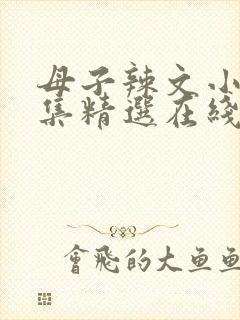 母子辣文小
集精選在綫
會飛的大魚魚